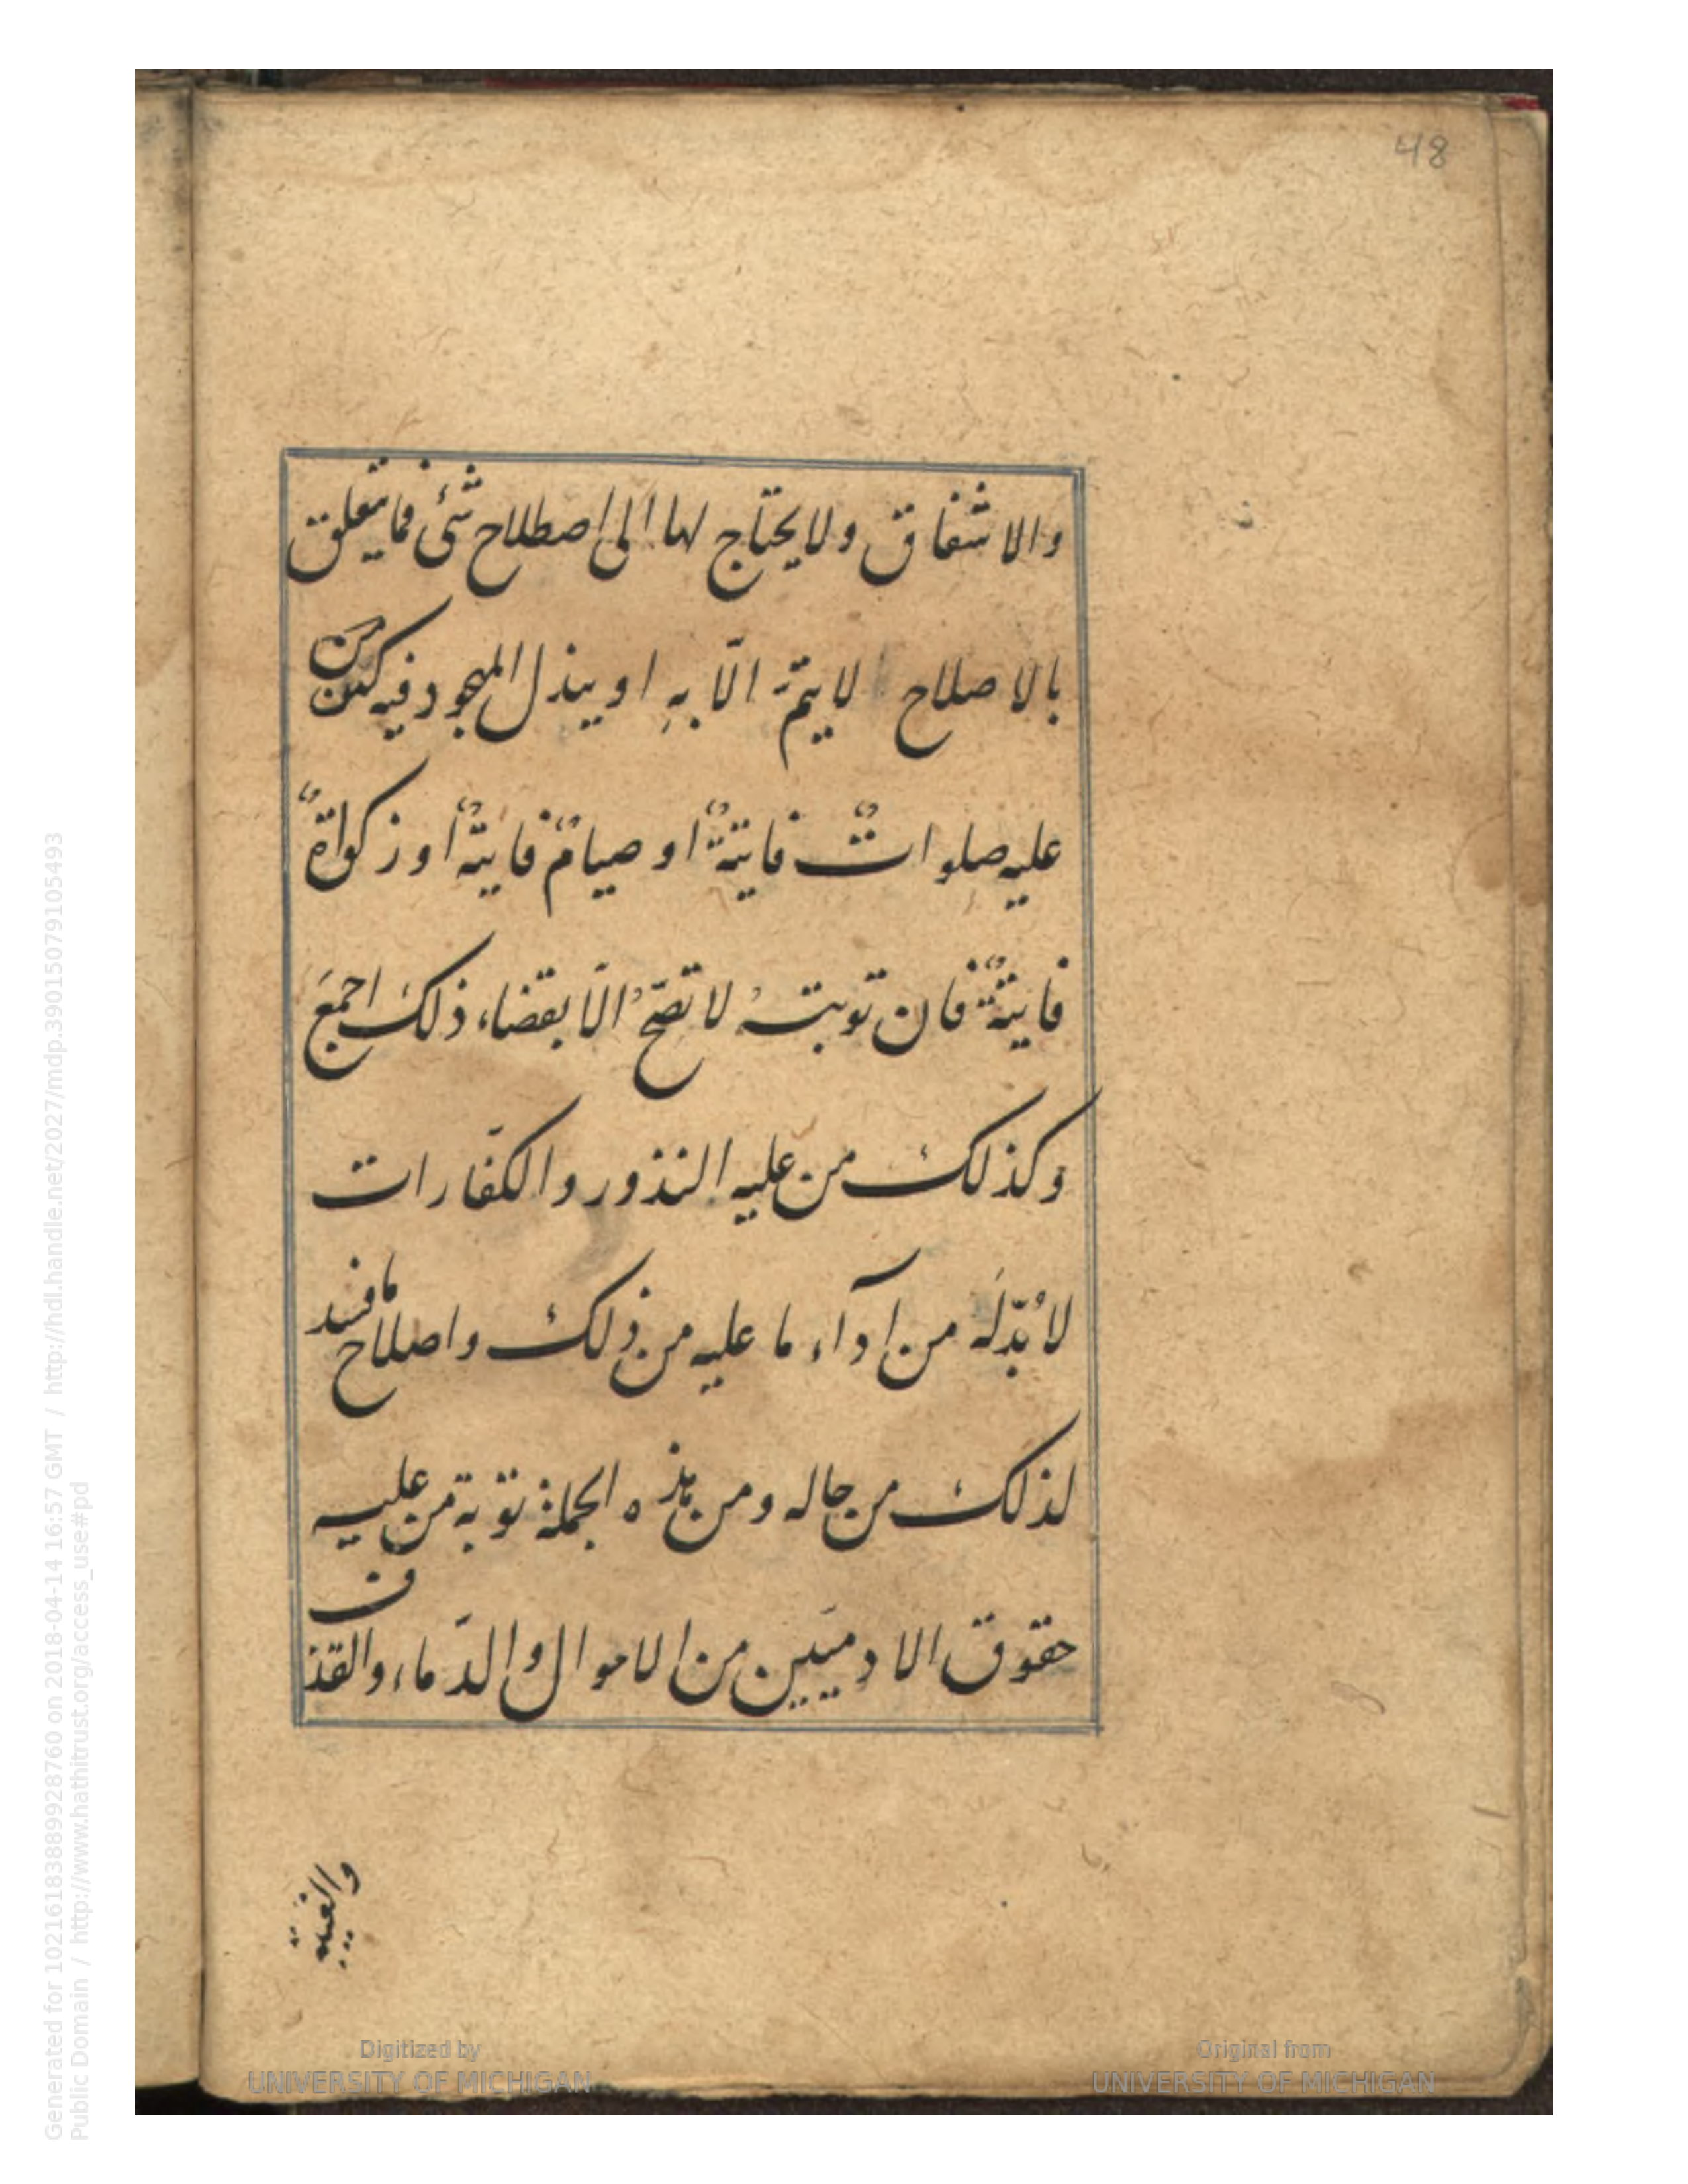 48
والاشفاق ولا يحتاج لها الى اصطلاح شئ فما يتعلق
بالاصلاح لا يتمّ الّا بهِ او يبذل المجهود فيه كمن
عليه صلواتٌ فايتةٌ او صيامٌ فايتةٌ او زكواةٌ
فايتةٌ فان توبتهُ لا تصحّ الّا بقضاء ذلك اجمعَ
وكذلك من عليه النذور والكفّارات
لا بُدّلَه من ادآء ما عليه من ذلك واصلاح ما فسد
لذلك من حاله ومن هذه الجملة توبة من عليه
حقوق الادميّين من الاموال والدّماء والقذف
والغيبة
Digitized by
UNIVERSITY OF MICHIGAN
Original from
UNIVERSITY OF MICHIGAN
Generated for 102161838899928760 on 2018-04-14 16:57 GMT / http://hdl.handle.net/2027/mdp.39015079105493
Public Domain / http://www.hathitrust.org/access_use#pd